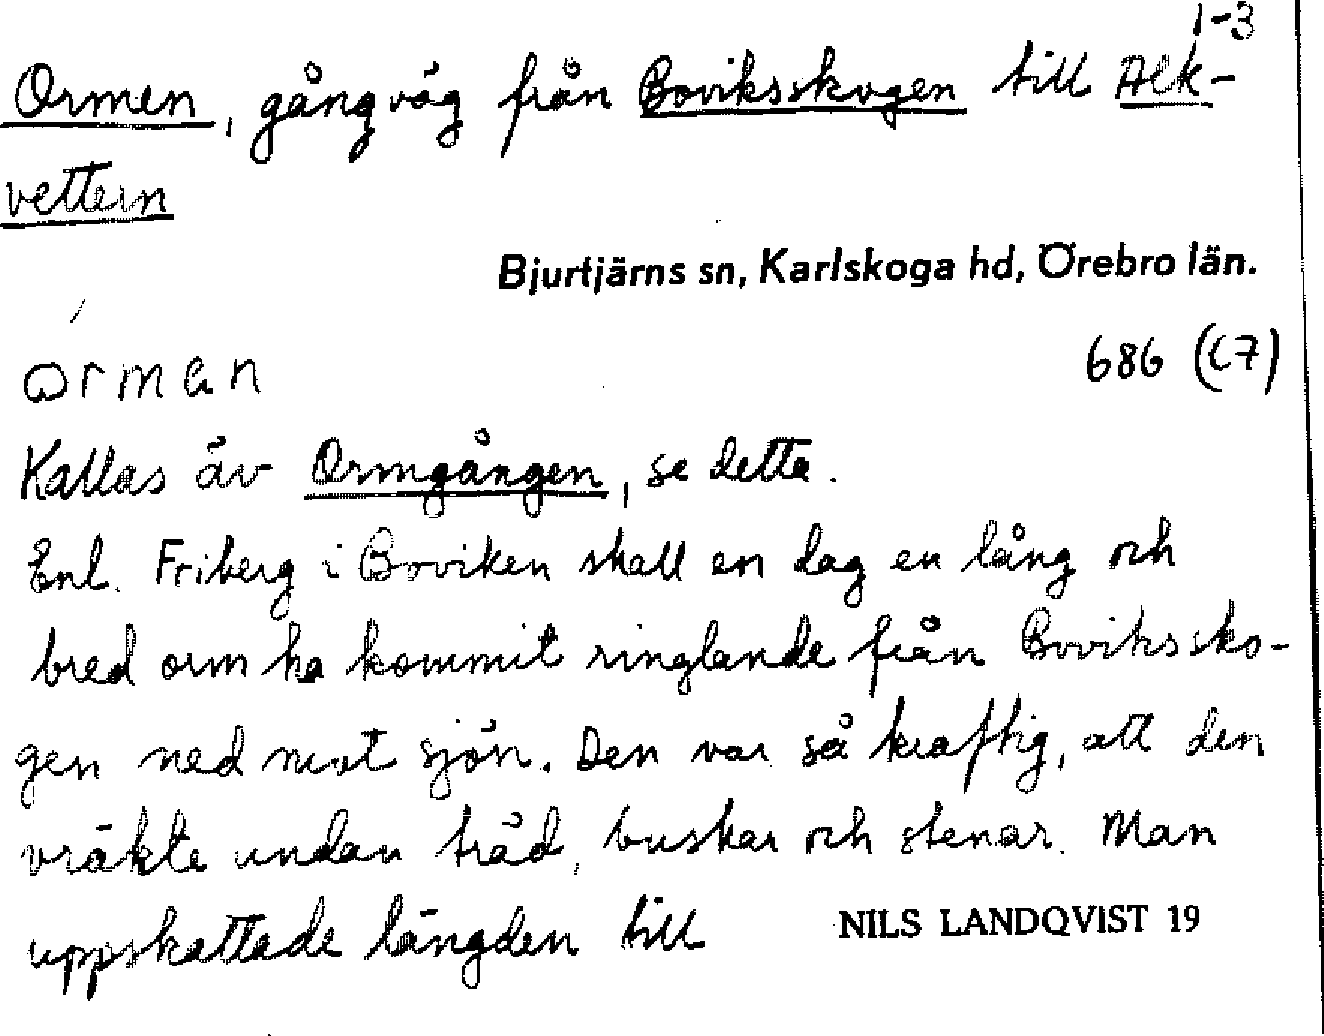 1-3
Ormen, gångväg från Boviksskogen till Alk-
vettern
Bjurtjärns sn, Karlskoga hd, Örebro län.
orman
686 (C7)
Kallas äv Ormgången, se detta.
Enl. Friberg i Boviken skall en dag en lång och
bred orm ha kommit ringlande från Bovikssko-
gen ned mot sjön. Den var så kraftig, att den
vräkte undan träd, buskar och stenar. Man
uppskattade längden till
NILS LANDQVIST 19